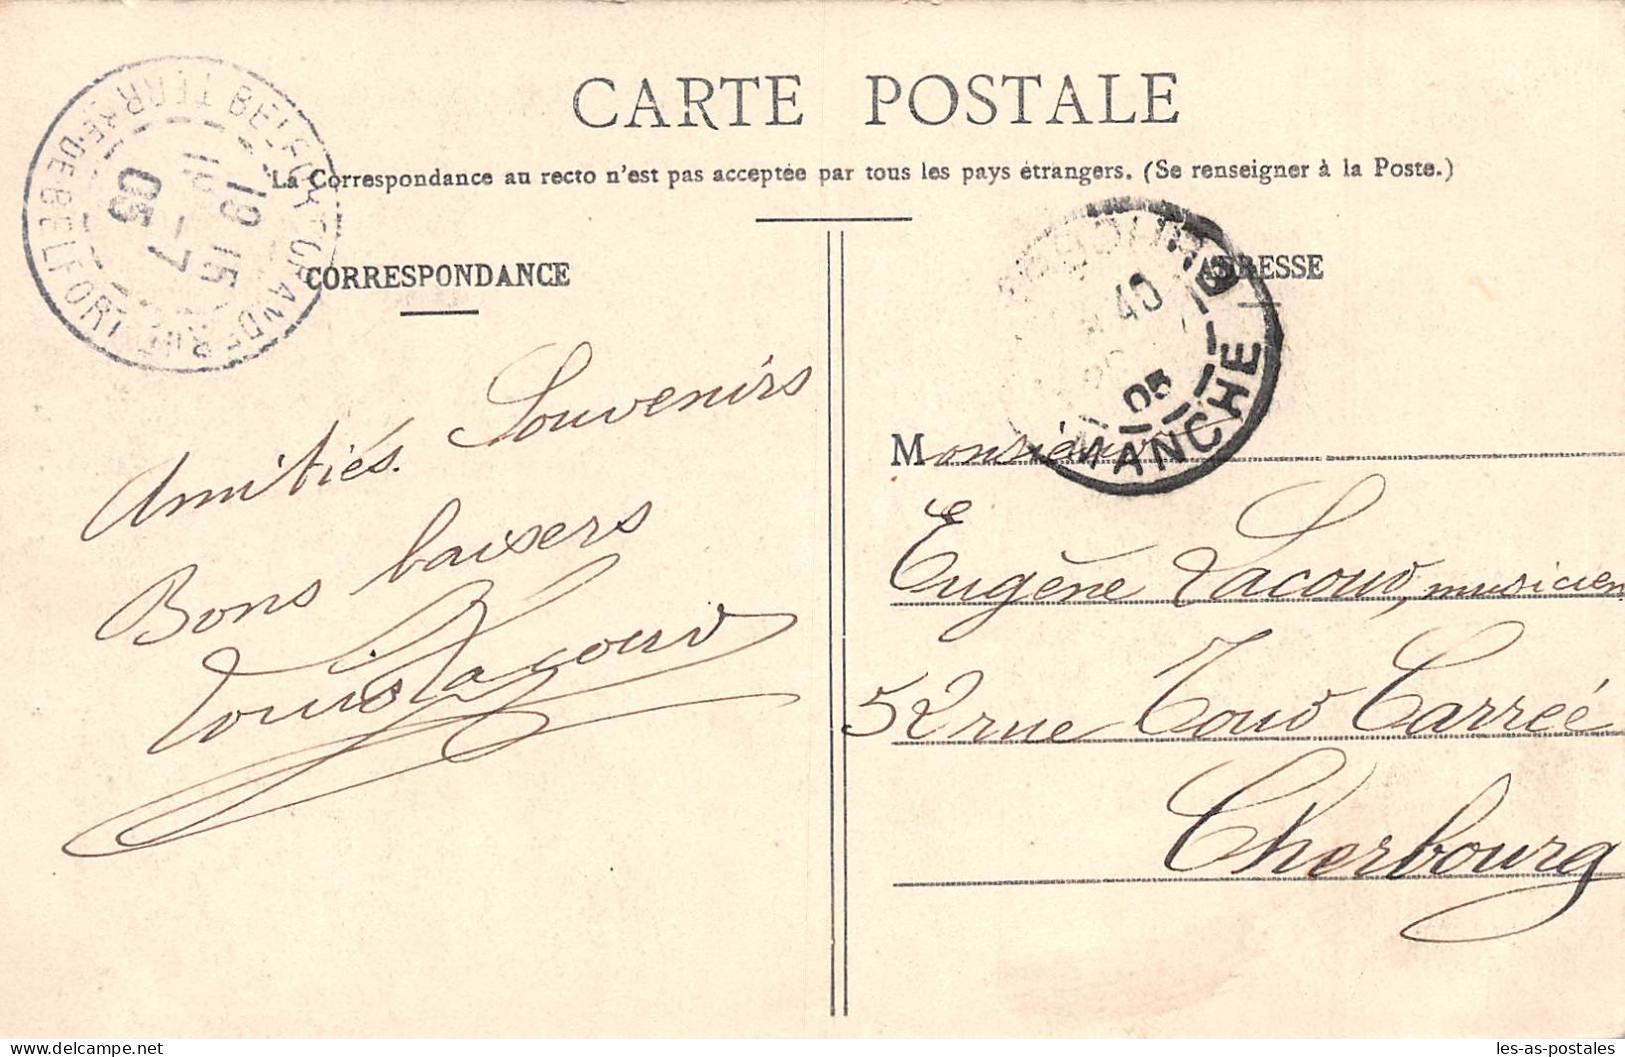 CARTE POSTALE
La Correspondance au recto n'est pas acceptée par tous les pays étrangers. (Se renseigner à la Poste.)
CORRESPONDANCE
Amitiés. Souvenirs
Bons baisers
Louis Lacour
BELFORT
TERRRE-DE-BELFORT
19 15
-7
05
ADRESSE
CHERBOURG
MANCHE
40
05
Monsieur
Eugène Lacour, musicien
52 rue Tour Carrée
Cherbourg
les-as-postales